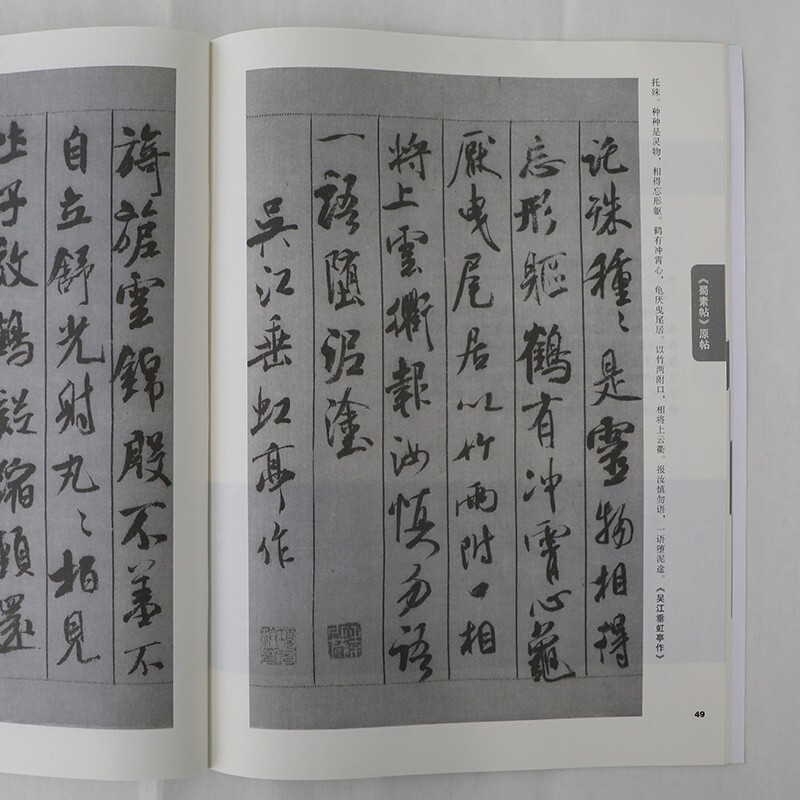 旖旎雲錦殷不羞不
自立舒光射丸〻柏見
吐子效鶴疑縮頸還
托殊。种种是灵物，相得忘形躯。鹤有冲霄心，龟厌曳尾居。以竹两附口，相将上云衢。报汝慎勿语，一语堕泥途。《吴江垂虹亭作》
託殊種〻是靈物相得
忘形軀鶴有冲霄心龜
厭曳尾居以竹兩附口相
將上雲衢報汝慎勿語
一語墮泥塗
吳江垂虹亭作
《蜀素帖》原帖
49